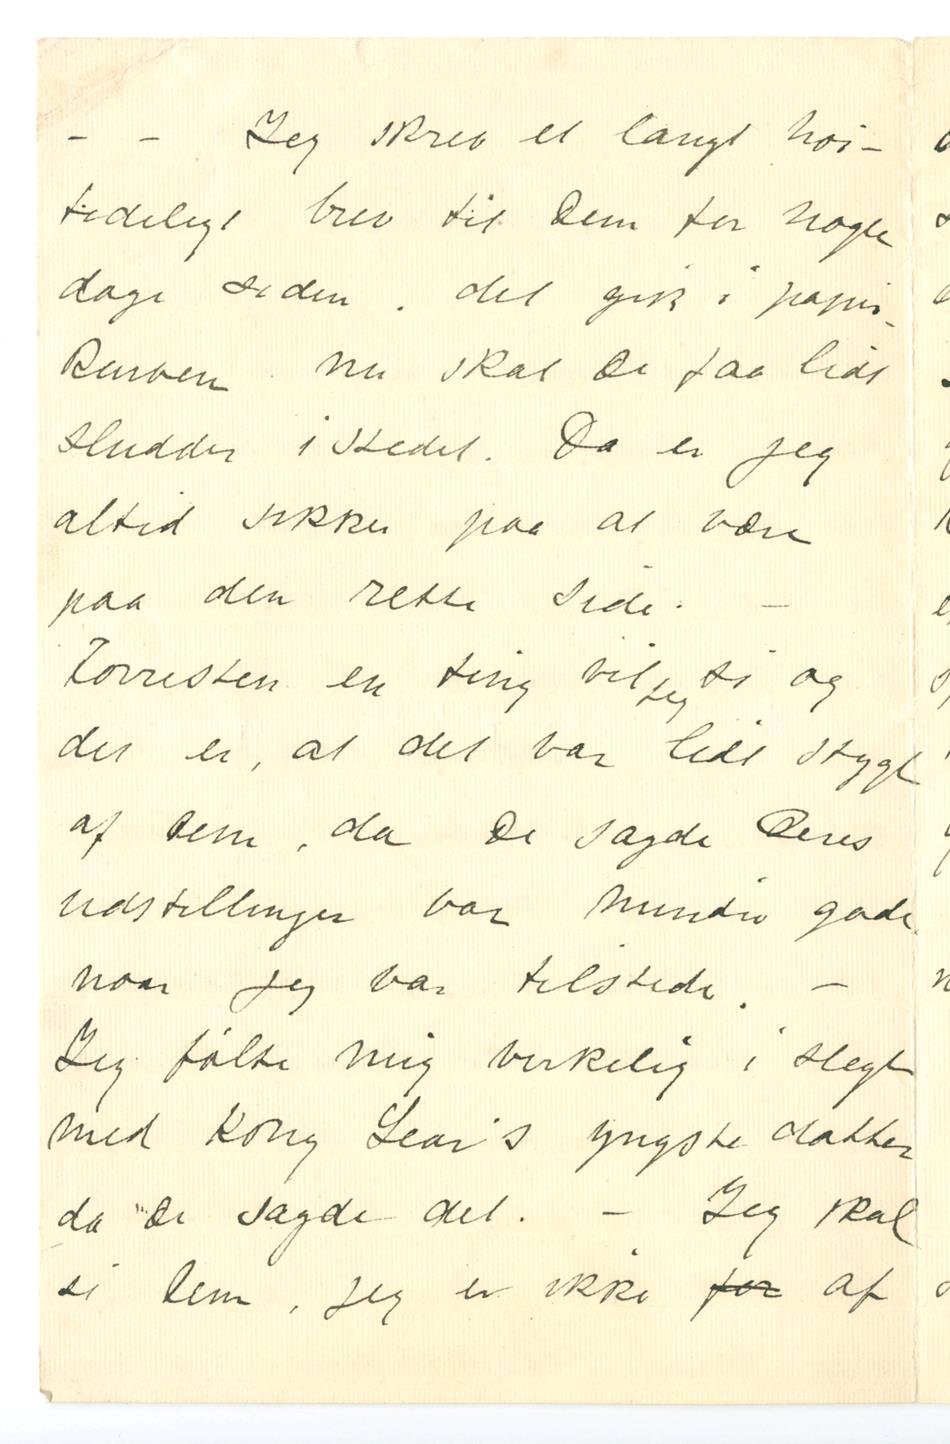 – – Jeg skrev et langt høi-
tideligt brev til Dem for nogle
dage siden. det gik i papir-
kurven. nu skal De faa lidt
sludder istedet. Da er jeg
altid sikker paa at være
paa den rette side. –
Forresten en ting vil jeg si og
det er, at det var lidt stygt
af Dem, da De sagde Deres
udstillinger var mindre gode
naar jeg var tilstede. –
Jeg følte mig virkelig i slegt
med Kong Lear's yngste datter
da De sagde det. – Jeg skal
si Dem, jeg er ikke for af